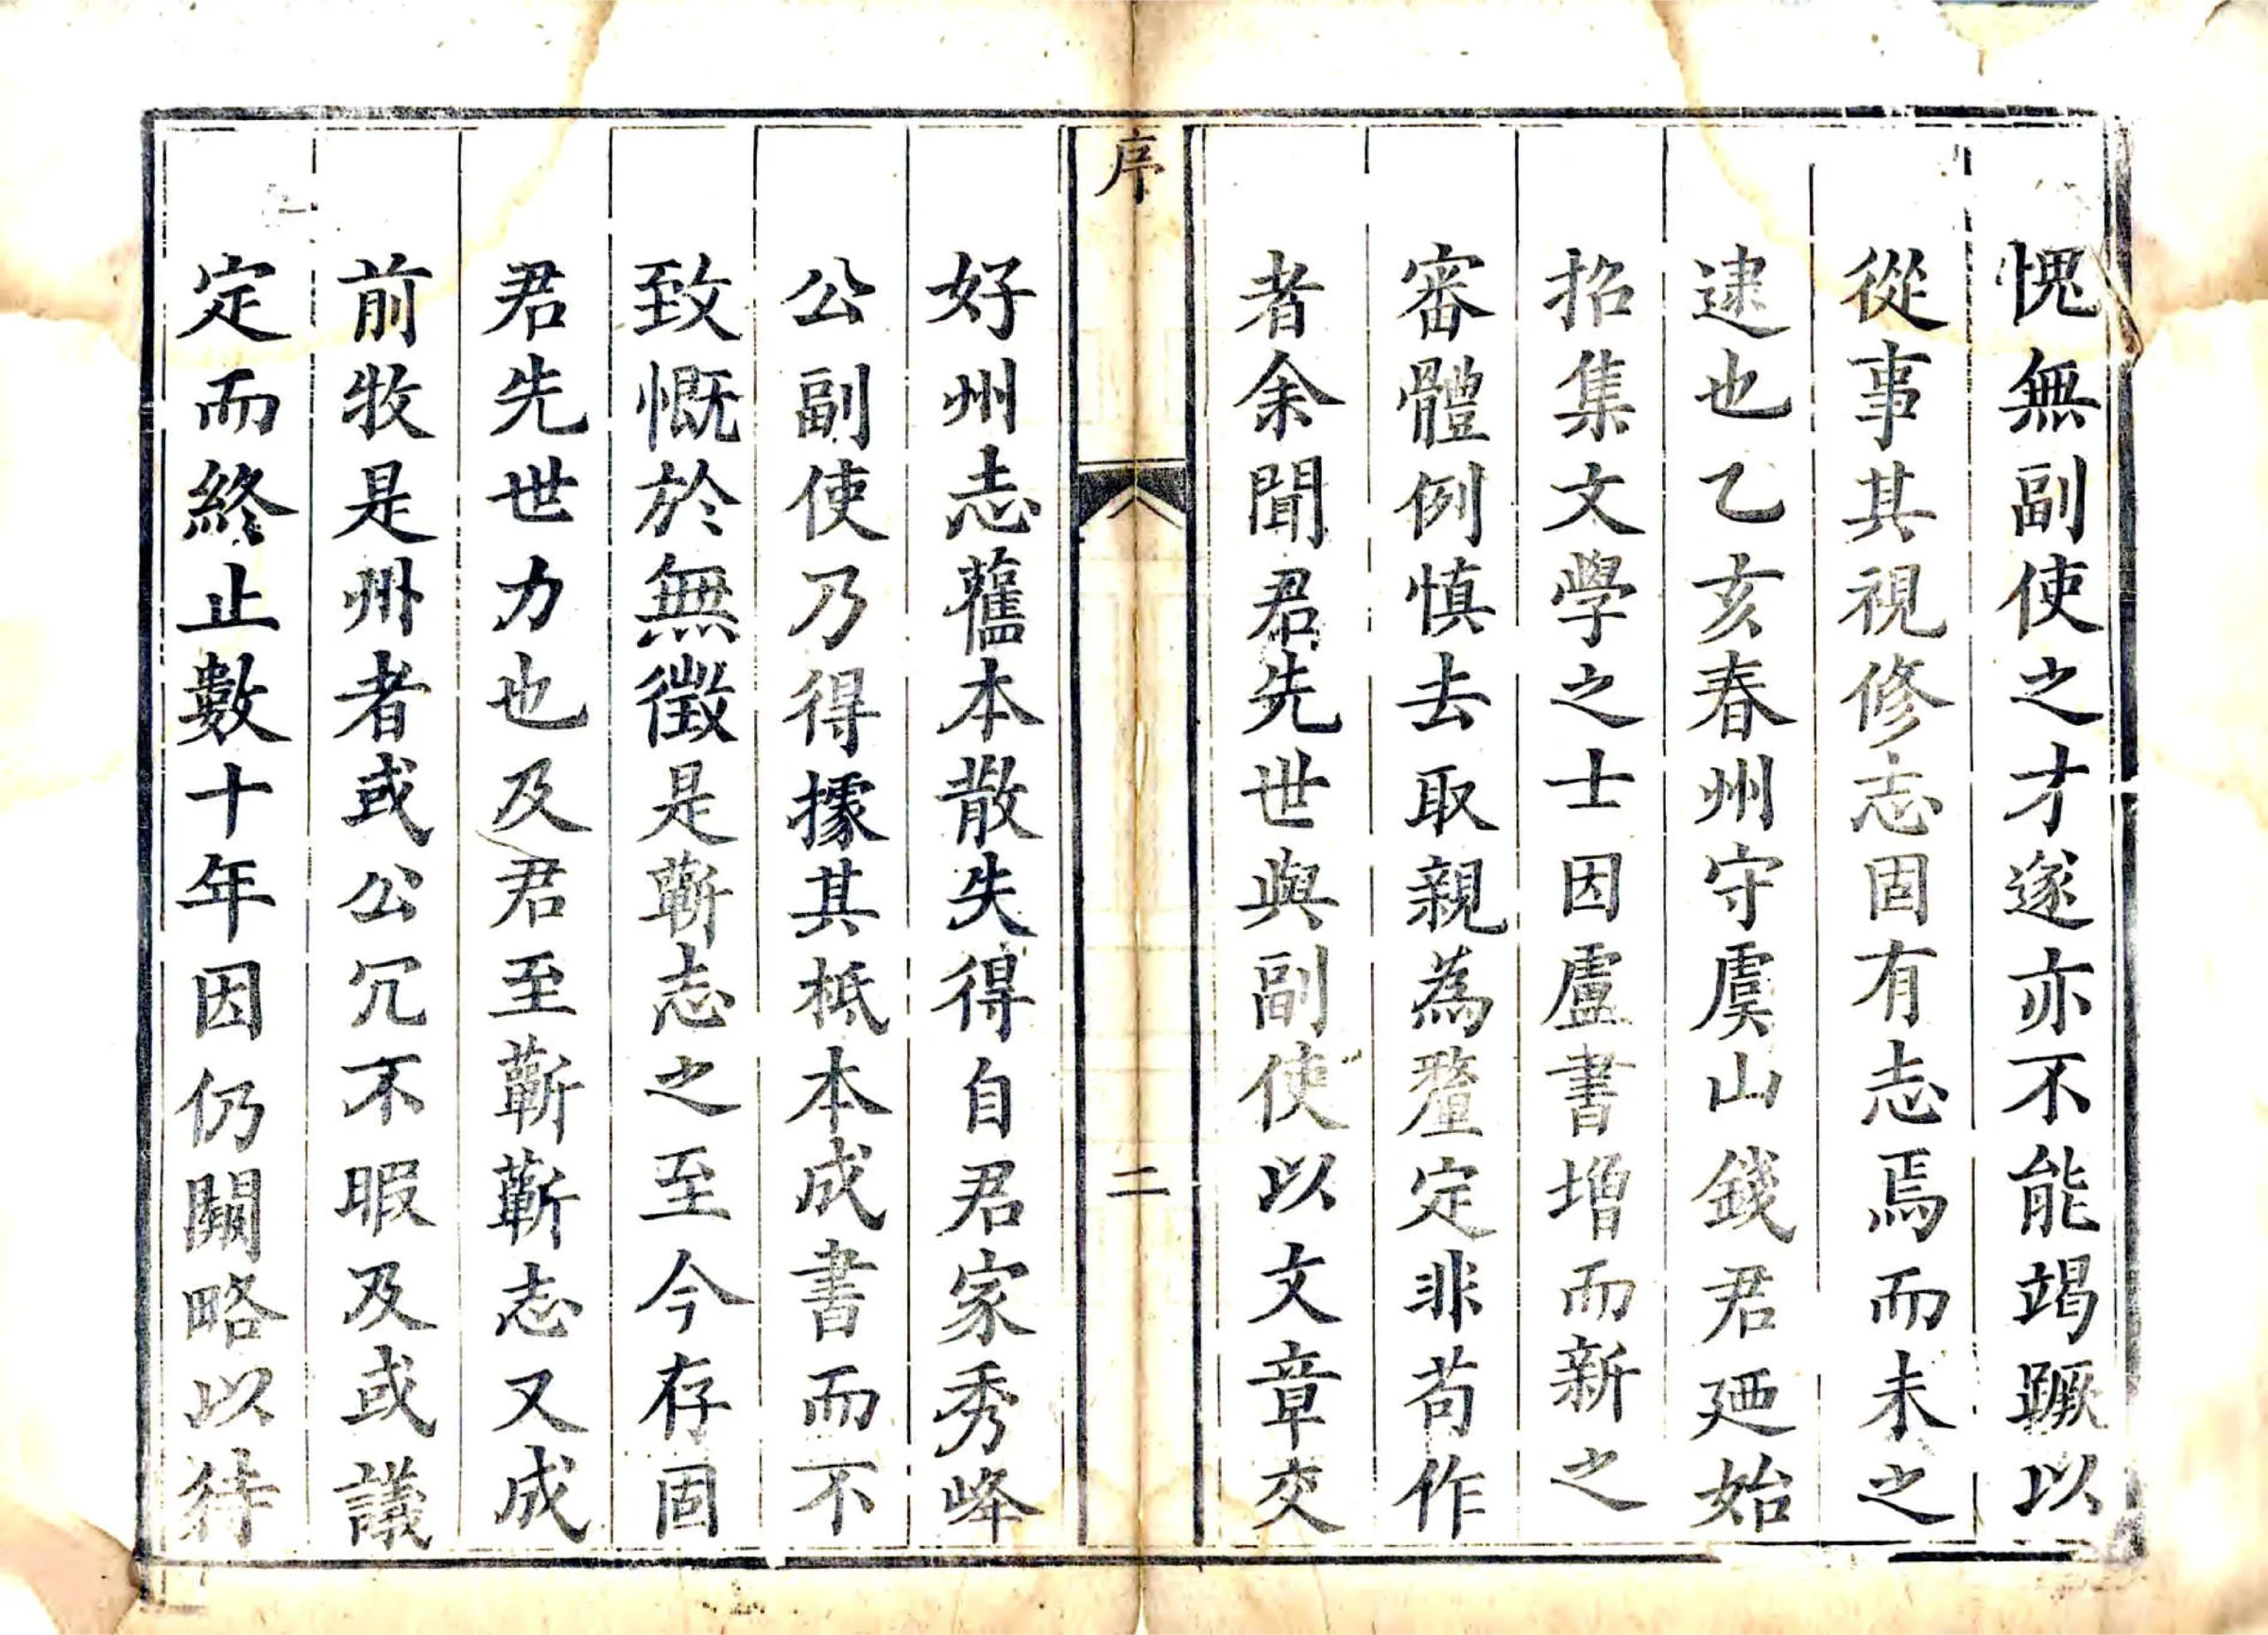 愧無副使之才遂亦不能竭蹶以
從事其視修志固有志焉而未之
逮也乙亥春州守虞山錢君廼始
招集文學之士因盧書增而新之
審體例慎去取親為釐定非苟作
者余聞君先世與副使以文章交
序
二
好州志舊本散失得自君家秀峰
公副使乃得據其柢本成書而不
致慨於無徵是蘄志之至今存固
君先世力也及君至蘄蘄志又成
前牧是州者或公冗不暇及或議
定而終止數十年因仍闕略以待